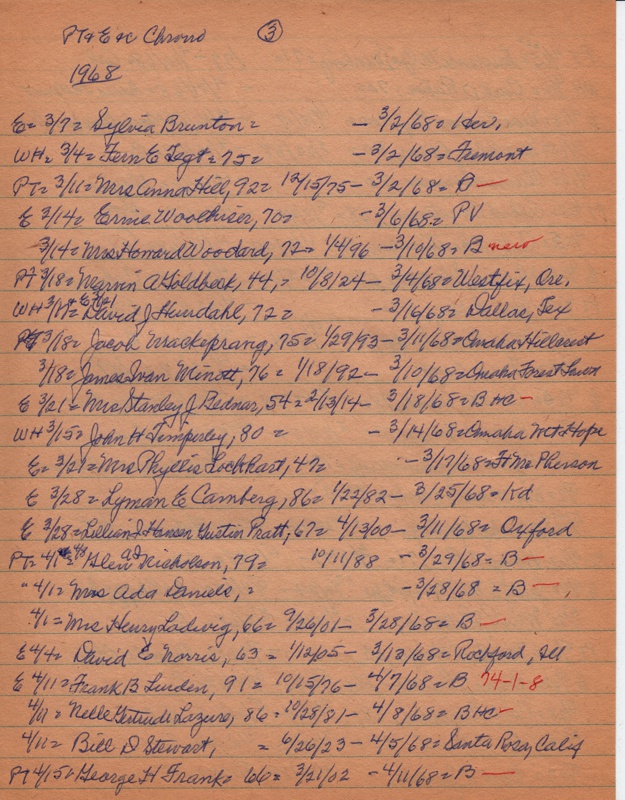 PT & E & C Chrono ③
1968
E = 3/7 = Sylvia Brunton = - 3/2/68 = Her.
WH = 3/4 = Fern E Tegt = 75 = - 3/2/68 = Fremont
PT = 3/11 = Mrs Anna Hill, 92 = 12/15/75 - 3/2/68 = B —
E 3/14 = Ernie Woolhiser, 70 = - 3/6/68 = PV
3/14 = Mrs Howard Woodard, 72 = 1/4/96 - 3/10/68 = B new
PT 3/18 = A Goldbeck, 44, = 10/8/24 - 3/4/68 = Westfir, Ore.
WH 3/18 = David J Hundahl, 72 = - 3/16/68 = Dallas, Tex
PT 3/18 = Jacob Mackeprang, 75 = 1/29/93 - 3/11/68 = Omaha Hillcrest
3/18 = James Ivan Minott, 76 = 1/18/92 - 3/10/68 = Omaha Forest Lawn
E 3/21 = Mrs Stanley J Bednar, 54 = 2/13/14 - 3/18/68 = B HC —
WH 3/15 = John H Timperley, 80 = - 3/14/68 = Omaha Wt Hope
E = 3/21 = Mrs Phyllis Lockhart, 47 = - 3/17/68 = Ft McPherson
E 3/28 = Lyman E Camberg, 86 = 1/22/82 - 3/25/68 = Kd
E 3/28 = Lillian I Hansen Gustin Pratt, 67 = 4/13/00 - 3/11/68 = Oxford
PT = 4/1 = Glen Nicholson, 79 = 10/11/88 - 3/29/68 = B —
" 4/1 = Mrs Ada Daniels, = - 3/28/68 = B —
4/1 = Mrs Henry Ludwig, 66 = 9/26/01 - 3/28/68 = B —
E 4/4 = David E Norris, 63 = 1/12/05 - 3/13/68 = Rockford, Ill
E 4/11 = Frank B Lunden, 91 = 10/15/76 - 4/7/68 = B 74-1-8
4/11 = Nelle Gertrude Lazure, 86 = 10/28/81 - 4/8/68 = B HC
4/11 = Bill D Stewart, = 6/26/23 - 4/5/68 = Santa Rosa, Calif
PT 4/15 = George H Frank = 66 = 3/21/02 - 4/11/68 = B —